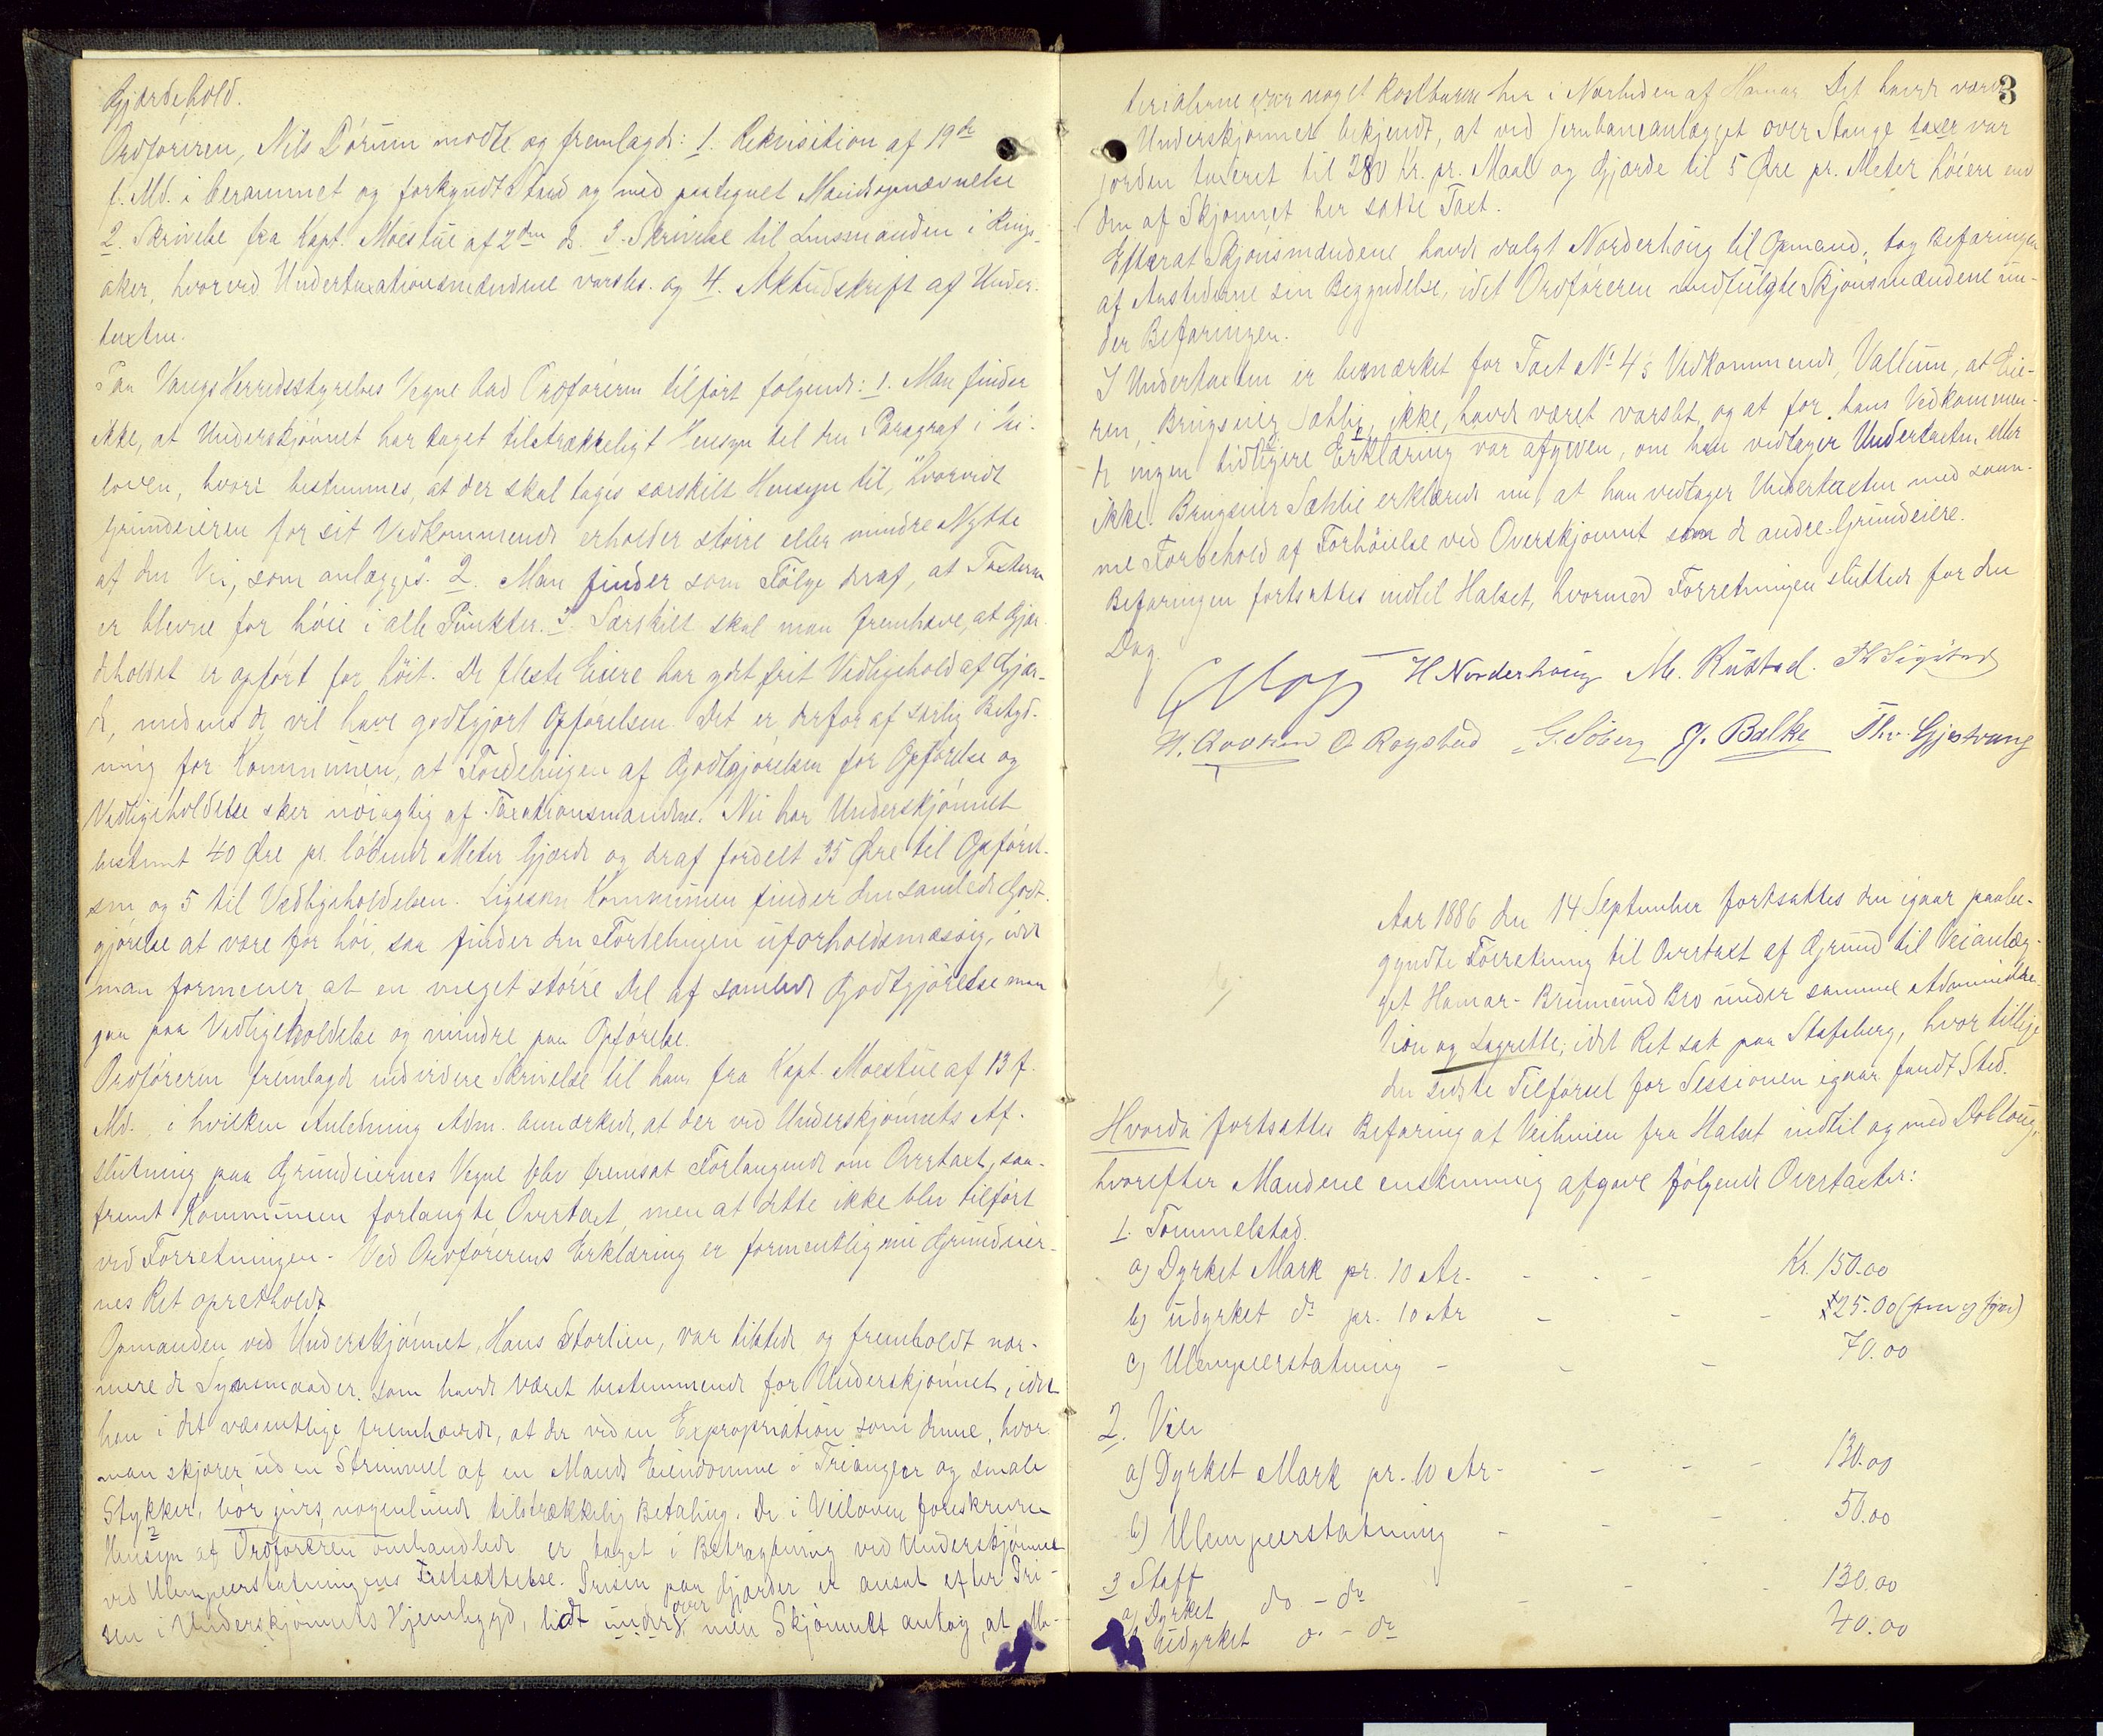 Gjærdehold.
Ordføreren, Nils Dørum mødte og fremlagde: 1. Rekvisition af 19de
f. Md. i berammet og forkyndt Stand og med paategnet Mandsopnævnelse
2. Skrivelse fra Kapt. Moestue af 2den ds. 3. Skrivelse til Lensmanden i Rings-
aker, hvorved Undertaxationsmændene varsles. og 4. Aktudskrift af Under-
taxten.
Paa Vangs Herredsstyrelses Vegne bad Ordføreren tilført følgende: 1. Man finder
ikke, at Underskjønnet har taget tilstrækkeligt Hensyn til den Paragraf i Vei-
loven, hvori bestemmes, at der skal tages særskilt Hensyn til, "hvorvidt
Grundeieren for sit Vedkommende erholder større eller mindre Nytte
af den Vei, som anlægges". 2. Man finder som Følge deraf, at Taxterne
er blevne for høie i alle Punkter. 3. Særskilt skal man fremhæve, at Gjær-
deholdet er opført for høit. De fleste Eiere har gjort frit Vedligehold af Gjær-
de, medens de vil have godtgjort Opførelsen. Det er derfor af særlig Betyd-
ning for Kommunen, at Fordelingen af Godtgjørelsen for Opførelse og
Vedligeholdelse sker nøiagtig af Taxationsmændene. Nu har Underskjønnet
bestemt 40 Øre pr. løbende Meter Gjærde og deraf fordelt 35 Øre til Opførel-
sen og 5 til Vedligeholdelsen. Ligesom Kommunen finder den samlede Godt-
gjørelse at være for høi, saa finder den Fordelingen uforholdsmæssig, idet
man formener, at en meget større Del af samlede Godtgjørelse maa
gaa paa Vedligeholdelse og mindre paa Opførelse.
Ordføreren fremlagde endvidere Skrivelse til ham fra Kapt. Moestue af 13 f.
Md. i hvilken Anledning Adm. anmærkede, at der ved Underskjønnets Af-
slutning paa Grundeiernes Vegne blev fremsat Forlangende om Overtaxt, saa-
fremt Kommunen forlangte Overtaxt, men at dette ikke blev tilført
ved Forretningen. Ved Ordførerens Erklæring er formentlig nu Grundeier-
nes Ret opretholdt.
Opmanden ved Underskjønnet, Hans Storlien, var tilstede og fremholdt nær-
mere de Synsmaader, som havde været bestemmende for Underskjønnet, idet
han i det væsentlige fremhævede, at der ved en Expropriation som denne, hvor
man skjærer ud en Strimmel af en Mands Eiendomme i Triangler og smale
Stykker, bør gives nogenlunde tilstrækkelig Betaling. De i Veiloven foreskrevne
Hensyn af Ordføreren omhandlede er taget i Betragtning ved Underskjønnet
ved Ulempeerstatningens Fastsættelse. Prisen paa Gjærder er ansat efter Pri-
sen i Underskjønnets Hjembygd, lidt over men Skjønnet antog, at Ma-
3
terialerne var noget kostbarere her i Nærheden af Hamar. Det havde været
Underskjønnet bekjendt, at ved Jernbaneanlægget over Stange taxer var
Jorden taxeret til 280 Kr. pr. Maal og Gjærde til 5 Øre pr. Meter høiere end
den af Skjønnet her satte Taxt.
Efterat Skjønsmændene havde valgt Norderhoug til Opmand, tog Befaringen
af Aastederne sin Begyndelse, idet Ordføreren medfulgte Skjønsmændene un-
der Befaringen.
I Undertaxten er bemærket for Taxt No 4's Vedkommende, Vallum, at Eie-
ren, Brugseier Sæhlie, ikke havde været varslet, og at for hans Vedkommen-
de ingen tidligere Erklæring var afgiven, om han vedtager Undertaxten eller
ikke. Brugseier Sæhlie erklærede nu, at han vedtager Undertaxten med sam-
me Forbehold af Forhøielse ved Overskjønnet som de andre Grundeiere.
Befaringen fortsattes indtil Halset, hvormed Forretningen sluttede for den
Dag.
H Norderhoug M. Rustad.
O Rogstad G. Søberg J. Balke Thv. Gjestvang
Aar 1886 den 14 September fortsattes den igaar paabe-
gyndte Forretning til Overtaxt af Grund til Veianlæg-
get Hamar-Brumund Bro under samme Administra-
tion og Lagrette; idet Ret sat paa Stafsberg, hvor tillige
den sidste Tilførsel for Sessionen igaar fandt Sted.
Hvorda fortsattes Befaring af Veilinien fra Halset indtil og med Dobloug,
hvorefter Mændene enstemmig afgave følgende Overtaxter:
1. Tommelstad.
a) Dyrket Mark pr. 10 Ar - - - Kr. 150.00
b) udyrket do pr. 10 Ar - - - 25.00
c) Ulempeerstatning - - - 70.00
2. Vien
a) Dyrket Mark pr. 10 Ar - - - 130.00
b) Ulempeerstatning - - - 50.00
3 Staff
a) Dyrket do - do - - 130.00
b) Udyrket do - do 40.00